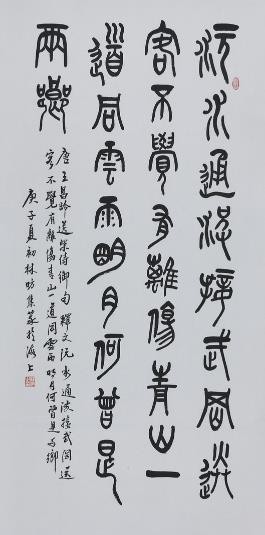 沅水通波接武岡送
客不覺有離傷青山一
道同雲雨明月何曾是
兩鄉
唐王昌齡送柴侍御句 釋文 沅水通波接武岡送
客不覺有離傷青山一道同雲雨明月何曾是兩鄉
庚子夏初林昉集篆於海上